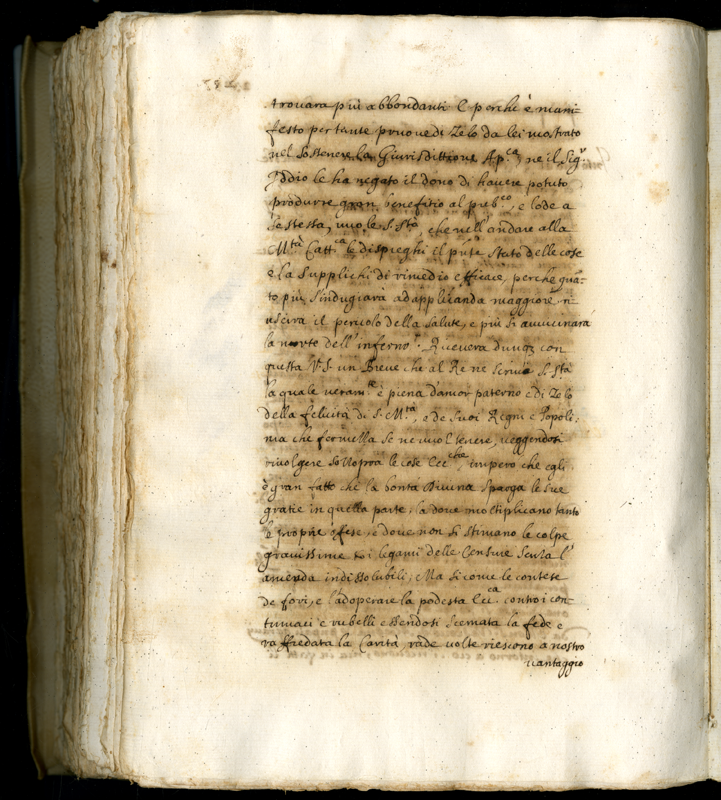 trouara più abbondanti E perche è mani=
festo per tante pruove di Zelo da lei mostrato
nel sostenere la Giurisdittione Ap.ca, ne il Sig.r
Iddio le ha negato il dono di havere potuto
produrre gran benefitio al pub.co, e lode a
se stessa, vuole S. Stà, che nell'andare alla
M.tà Catt.ca le dispieghi il pnte stato delle cose
e la supplichi di rimedio efficace, perche quã=
to più s'indugiarà ad applicanda maggiore ri
uscira il pericolo della salute, e più si avvicinarà
la morte dell'inferno. Riceverà dunq3 con
questa V.S. un Breve che al Re ne scrive S. Stà
la quale veram.te è piena d'amor paterno e di Zelo
della felicità di S. M.tà, e de suoi Regni e Popoli;
ma che fermella se ne vuol tenere, veggendosi
rivolgere sottopra le cose Ecc.che, impero che egli
è gran fatto che la bontà Divina sparga le sue
gratie in quella parte, la dove moltiplicano tanto
le proprie ofese, e dove non si stimano le colpe
gravissime, e i legami delle Censure senza l'
amenda indissolubili; Ma si come le contese
de fori, e l'adoperare la podestà Ecc.ca contro i con=
tumaci e rubelli essendosi scemata la fede e
raffredata la Carità rade volte riescono a nostro
vantaggio